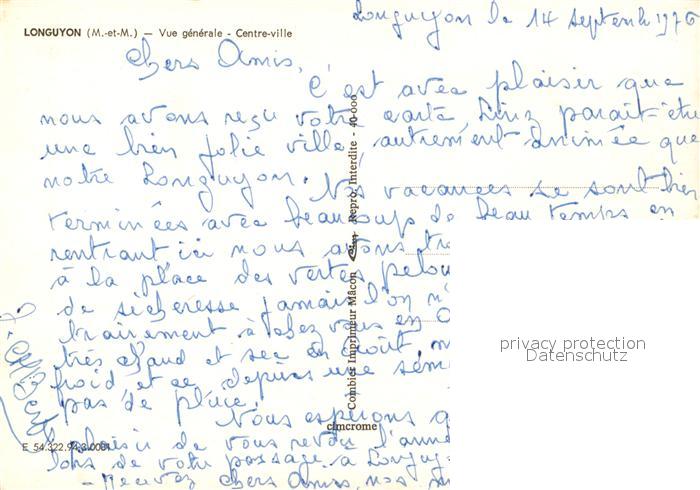 Longuyon le 14 Septemb 1976
LONGUYON (M.-et-M.) — Vue générale - Centre-ville
Chers Amis,
C'est avec plaisir que
nous avons reçu votre carte, Linz parait-être
une bien jolie ville, autrement animée que
notre Longuyon. Nos vacances se sont bien
terminées avec beaucoup de beau temps en
rentrant ici nous avons tr
à la place des vertes pelou
de sècheresse jamais l'on n'
trairement à chez vous en
très chaud et sec en Août, m
froid et ce depuis une sem
pas de pluie.
Nous espérons q
plaisir de vous revoir l'anné
lors de votre passage à Longuy
Recevez Chers Amis, nos m
Combier Imprimeur Mâcon Cim Repro. Interdite - 40-000
cimcrome
E 54.322.94.3.0001
privacy protection
Datenschutz